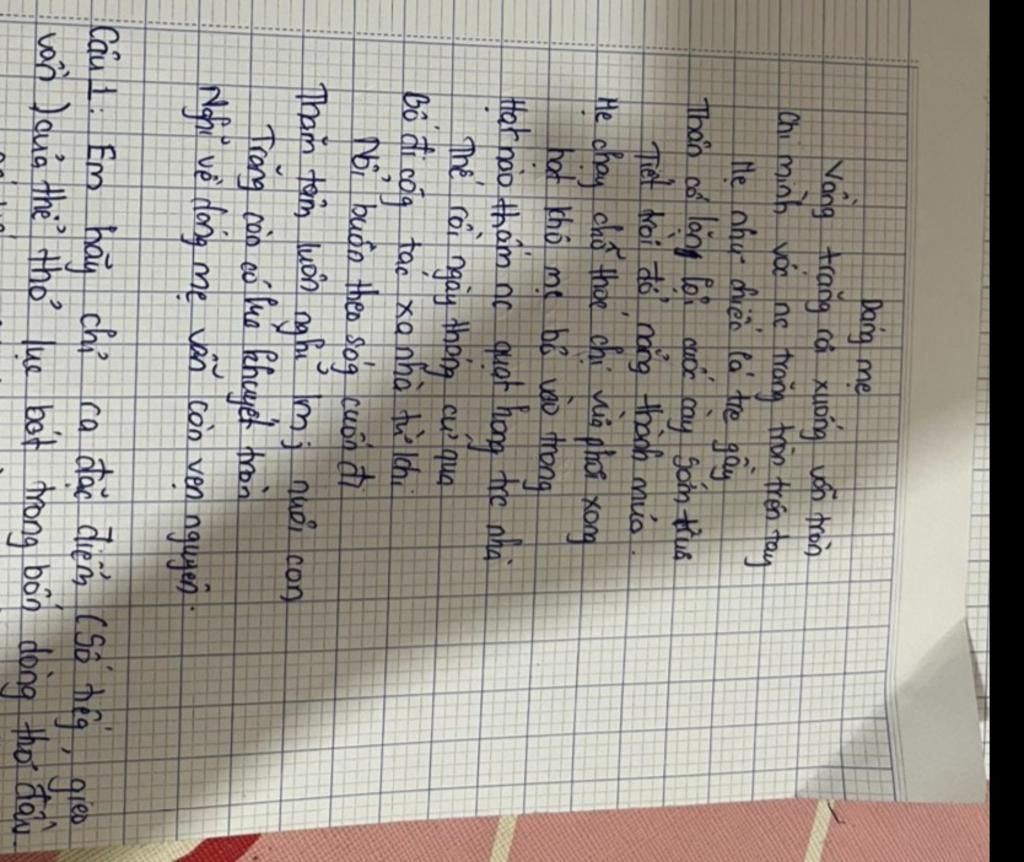 Dáng mẹ
Vầng trăng cả xuống vốn tròn
Chị mình vóc nc trăng tròn trên tay
Mẹ như chiếc lá tre gầy
Thân cò lặng lội cuốc cày sớm trưa
Tiết trời đổ nắng thành mưa.
Mẹ chạy chỗ thóc chị vừa phơi xong
hạt khô mẹ bỏ vào trong
Hạt nào thấm nc quạt hong trc nhà
Thế rồi ngày tháng cứ qua
Bố đi công tác xa nhà từ khi
Nỗi buồn theo sóng cuốn đi
Thăm tâm luôn nghĩ mj nuôi con
Trăng còn có lúc khuyết tròn
Nghĩ về dáng mẹ vẫn còn vẹn nguyên.
Câu 1: Em hãy chỉ ra đặc điểm (số tiếng, gieo
vần) của thể thơ lục bát trong bốn dòng thơ đầu.